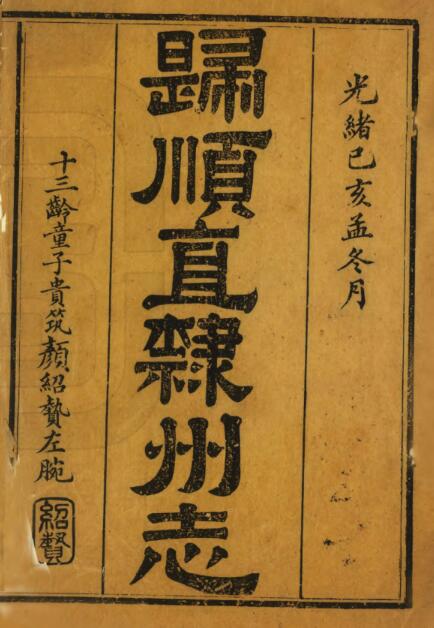 光緒己亥孟冬月
歸順直隸州志
十三齡童子貴筑顏紹贄左腕
紹贄